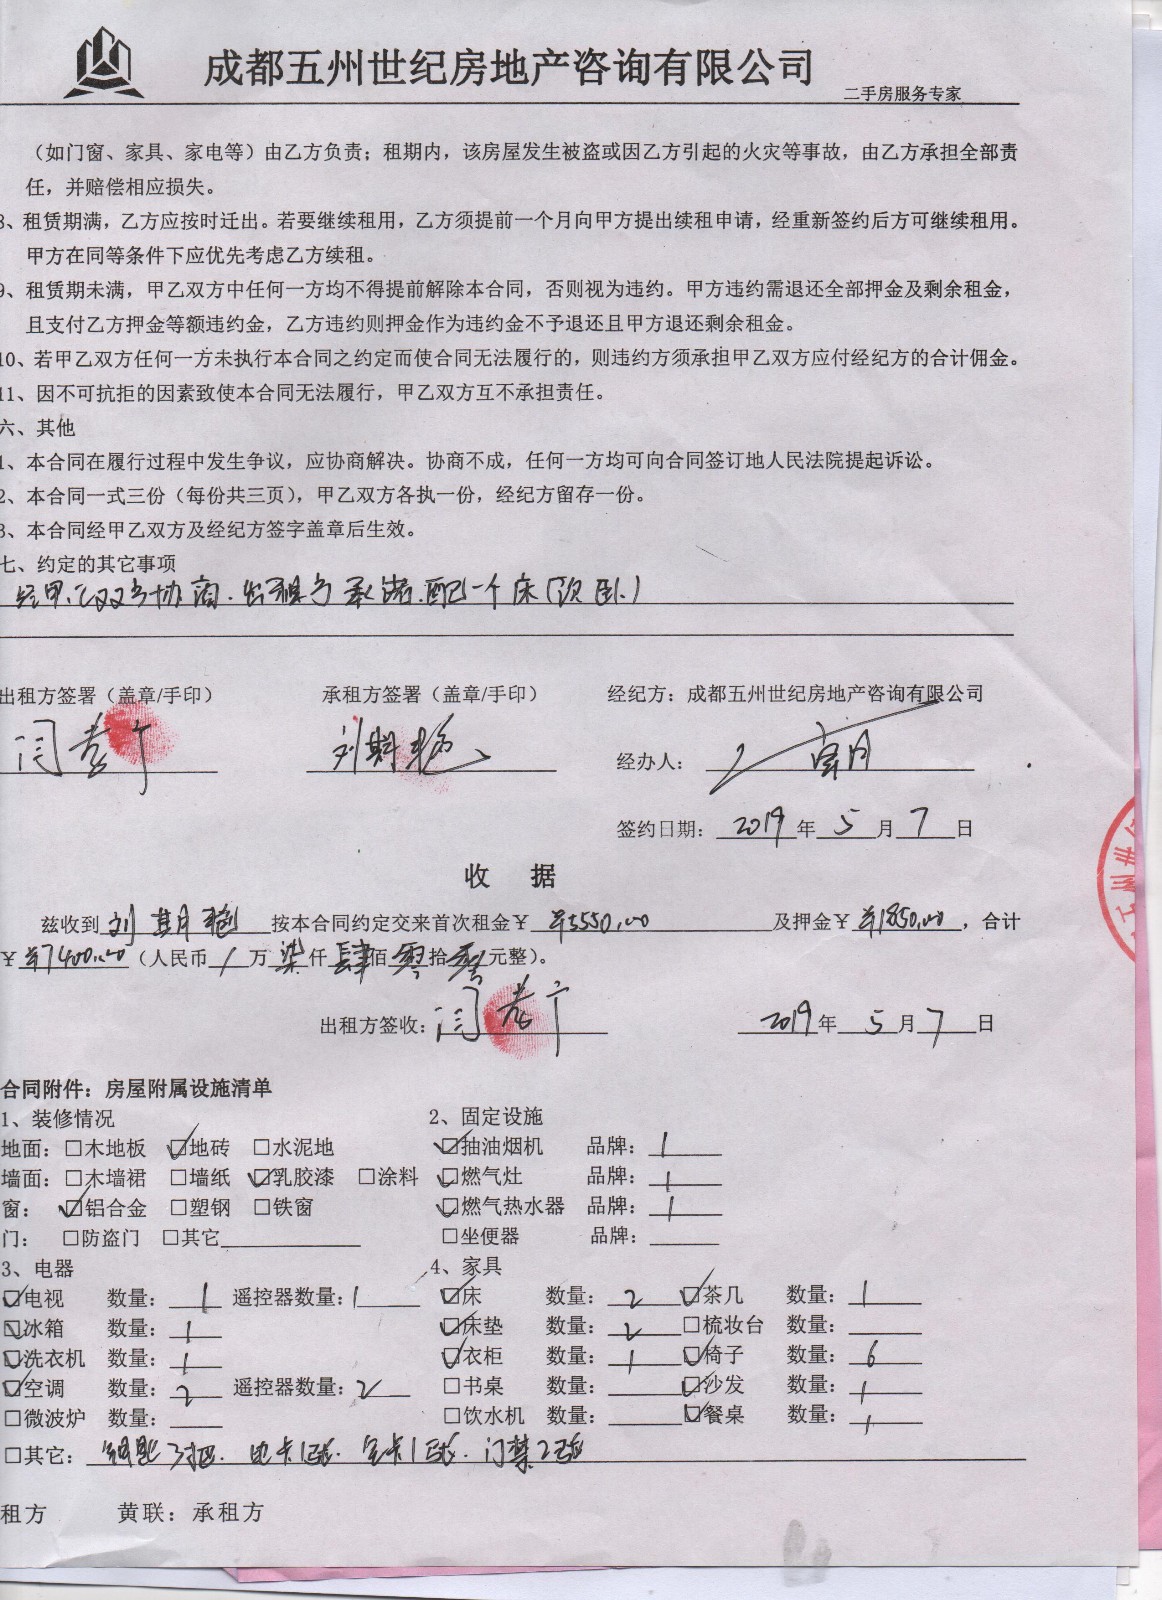 成都五州世纪房地产咨询有限公司
二手房服务专家
（如门窗、家具、家电等）由乙方负责；租期内，该房屋发生被盗或因乙方引起的火灾等事故，由乙方承担全部责
任，并赔偿相应损失。
8、租赁期满，乙方应按时迁出。若要继续租用，乙方须提前一个月向甲方提出续租申请，经重新签约后方可继续租用。
甲方在同等条件下应优先考虑乙方续租。
9、租赁期未满，甲乙双方中任何一方均不得提前解除本合同，否则视为违约。甲方违约需退还全部押金及剩余租金，
且支付乙方押金等额违约金，乙方违约则押金作为违约金不予退还且甲方退还剩余租金。
10、若甲乙双方任何一方未执行本合同之约定而使合同无法履行的，则违约方须承担甲乙双方应付经纪方的合计佣金。
11、因不可抗拒的因素致使本合同无法履行，甲乙双方互不承担责任。
六、其他
1、本合同在履行过程中发生争议，应协商解决。协商不成，任何一方均可向合同签订地人民法院提起诉讼。
2、本合同一式三份（每份共三页），甲乙双方各执一份，经纪方留存一份。
3、本合同经甲乙双方及经纪方签字盖章后生效。
七、约定的其它事项
经甲、乙双方协商．出租方承诺．配一个床（次卧）
出租方签署（盖章/手印） 承租方签署（盖章/手印） 经纪方：成都五州世纪房地产咨询有限公司
闫孝 刘期艳 经办人：
签约日期：2019年5月7日
收 据
兹收到刘期艳按本合同约定交来首次租金￥¥5550.00及押金￥¥1850.00，合计
￥¥7400.00（人民币/万柒仟肆佰零拾零元整）。
出租方签收：闫孝 2019年5月7日
合同附件：房屋附属设施清单
1、装修情况 2、固定设施
地面：□木地板 ☑地砖 □水泥地 ☑抽油烟机 品牌：1
墙面：□木墙裙 □墙纸 ☑乳胶漆 □涂料 ☑燃气灶 品牌：1
窗： ☑铝合金 □塑钢 □铁窗 ☑燃气热水器 品牌：1
门： □防盗门 □其它 □坐便器 品牌：
3、电器 4、家具
☑电视 数量：1 遥控器数量：1 ☑床 数量：2 ☑茶几 数量：1
☑冰箱 数量：1 ☑床垫 数量：2 □梳妆台 数量：
☑洗衣机 数量：1 ☑衣柜 数量：1 ☑椅子 数量：6
☑空调 数量：2 遥控器数量：2 □书桌 数量： ☑沙发 数量：1
□微波炉 数量： □饮水机 数量： ☑餐桌 数量：1
□其它：钥匙3把．电卡1张．气卡1张．门禁2张
租方 黄联：承租方